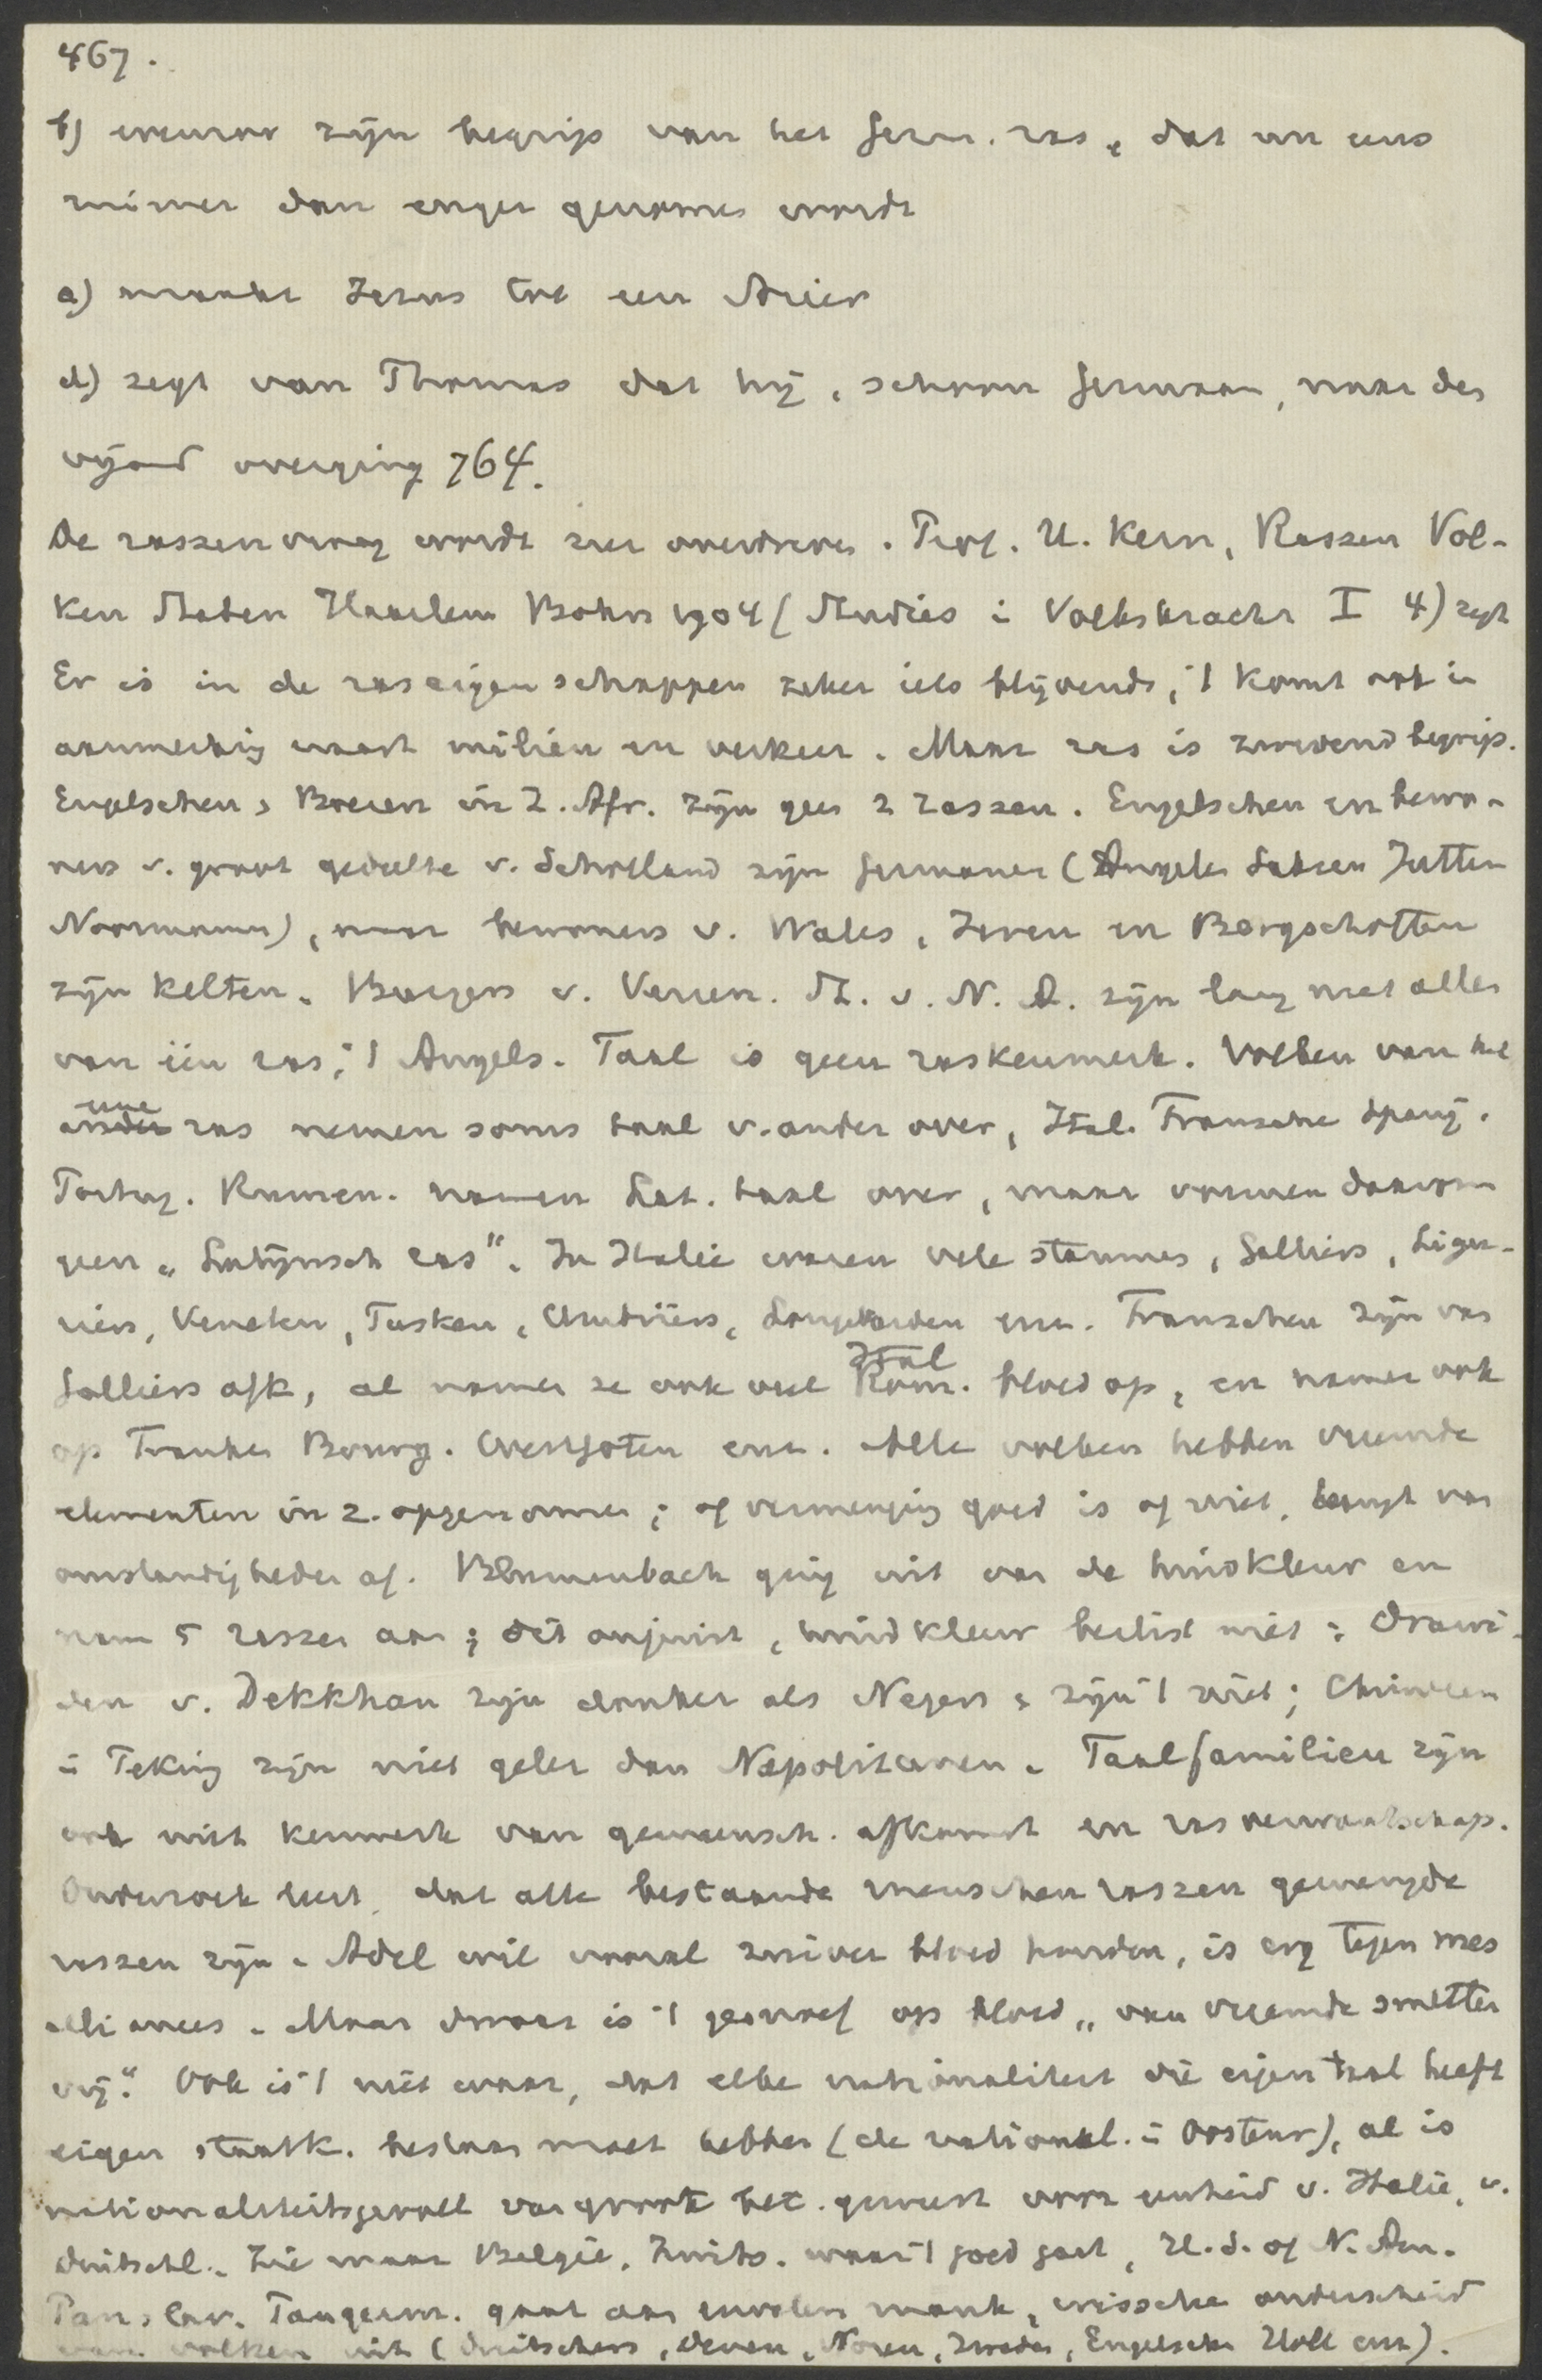 467.
b) zijn begrip van het Germ. ras, dat nu eens
ruimer dan enger genomen wordt
c) maakt Jezus tot een Arier
d) zegt van Thomas dat hij, schoon Germaan, naar den
vijand overging 764.
De rassenvraag wordt zeer overdreven. Prof. H. Kern, Rassen Vol-
ken Staten Haarlem Bohn 1904 (Studies i Volkskracht I 4) zegt
Er is in de raseigenschappen zeker iets blijvends, 't komt ook in
aanmerking naast milieu en verkeer. Maar ras is zwevend begrip.
Engelschen, Boeren in Z. Afr. zijn geen 2 rassen. Engelschen en bewo-
ners v. groot gedeelte v. Schotland zijn Germanen (Angelen Saksen Jutten
Noormannen), maar bewoners v. Wales, Ieren en Bergschotten
zijn Kelten. Burgers v. Veren. St. v. N. A. zijn lang niet allen
van één ras, 't Angels. Taal is geen raskenmerk. Volken van het
eene ras nemen soms taal v. ander over, Ital. Fransche Spanj.
Portug. Rumen. namen Lat. taal over, maar vormen daarom
geen „Latijnsch ras". In Italië waren vele stammen, Galliers, Ligu-
riërs, Veneten, Tusken, Umbriërs, Longobarden enz. Franschen zijn van
Galliers afk, al namen ze ook veel Ital bloed op, en namen ook
op Franken Bourg. Westgoten enz. Alle volken hebben vreemde
elementen in z. opgenomen; of vermenging goed is of niet, hangt van
omstandigheden af. Blumenbach ging uit van de huidkleur en
nam 5 rassen aan; dit onjuist, huidkleur beslist niet: Drawi-
den v. Dekkhan zijn donker als Negers & zijn 't niet; Chineezen
i Peking zijn niet geler dan Napolitanen. Taalfamilien zijn
ook niet kenmerk van gemeensch. afkomst en rasverwantschap.
Onderzoek leert, dat alle bestaande menschenrassen gemengde
rassen zijn. Adel wil vooral zuiver bloed houden, is erg tegen mes
alliances. Maar dwaas is 't gesnoef op bloed „van vreemde smetten
vrij". Ook is 't niet waar, dat elke nationaliteit die eigen taal heeft
eigen staatk. bestaan moet hebben (de national. i Oostenr), al is
nationaliteitsgevoel van groote bet. geweest voor eenheid v. Italië, v.
Duitschl. Zie maar België, Zwits. waar 't goed gaat, U.S. of N. Am.
Panslav. Pangerm. gaat aan euvelen mank, wissche onderscheid
van volken uit (Duitschers, Denen, Noren, Zweden, Engelschen Holl enz).